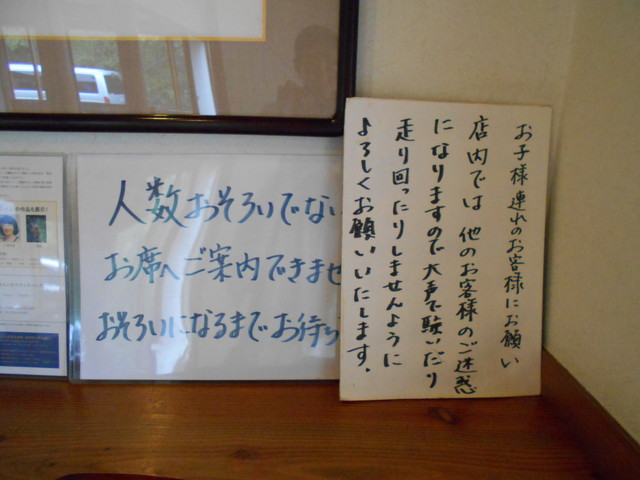 人数おそろいでない
お席へご案内できませ
おそろいになるまでお待ち
お子様連れのお客様にお願い
店内では他のお客様のご迷惑
になりますので大声で騒いだり
走り回ったりしませんように
よろしくお願いいたします.